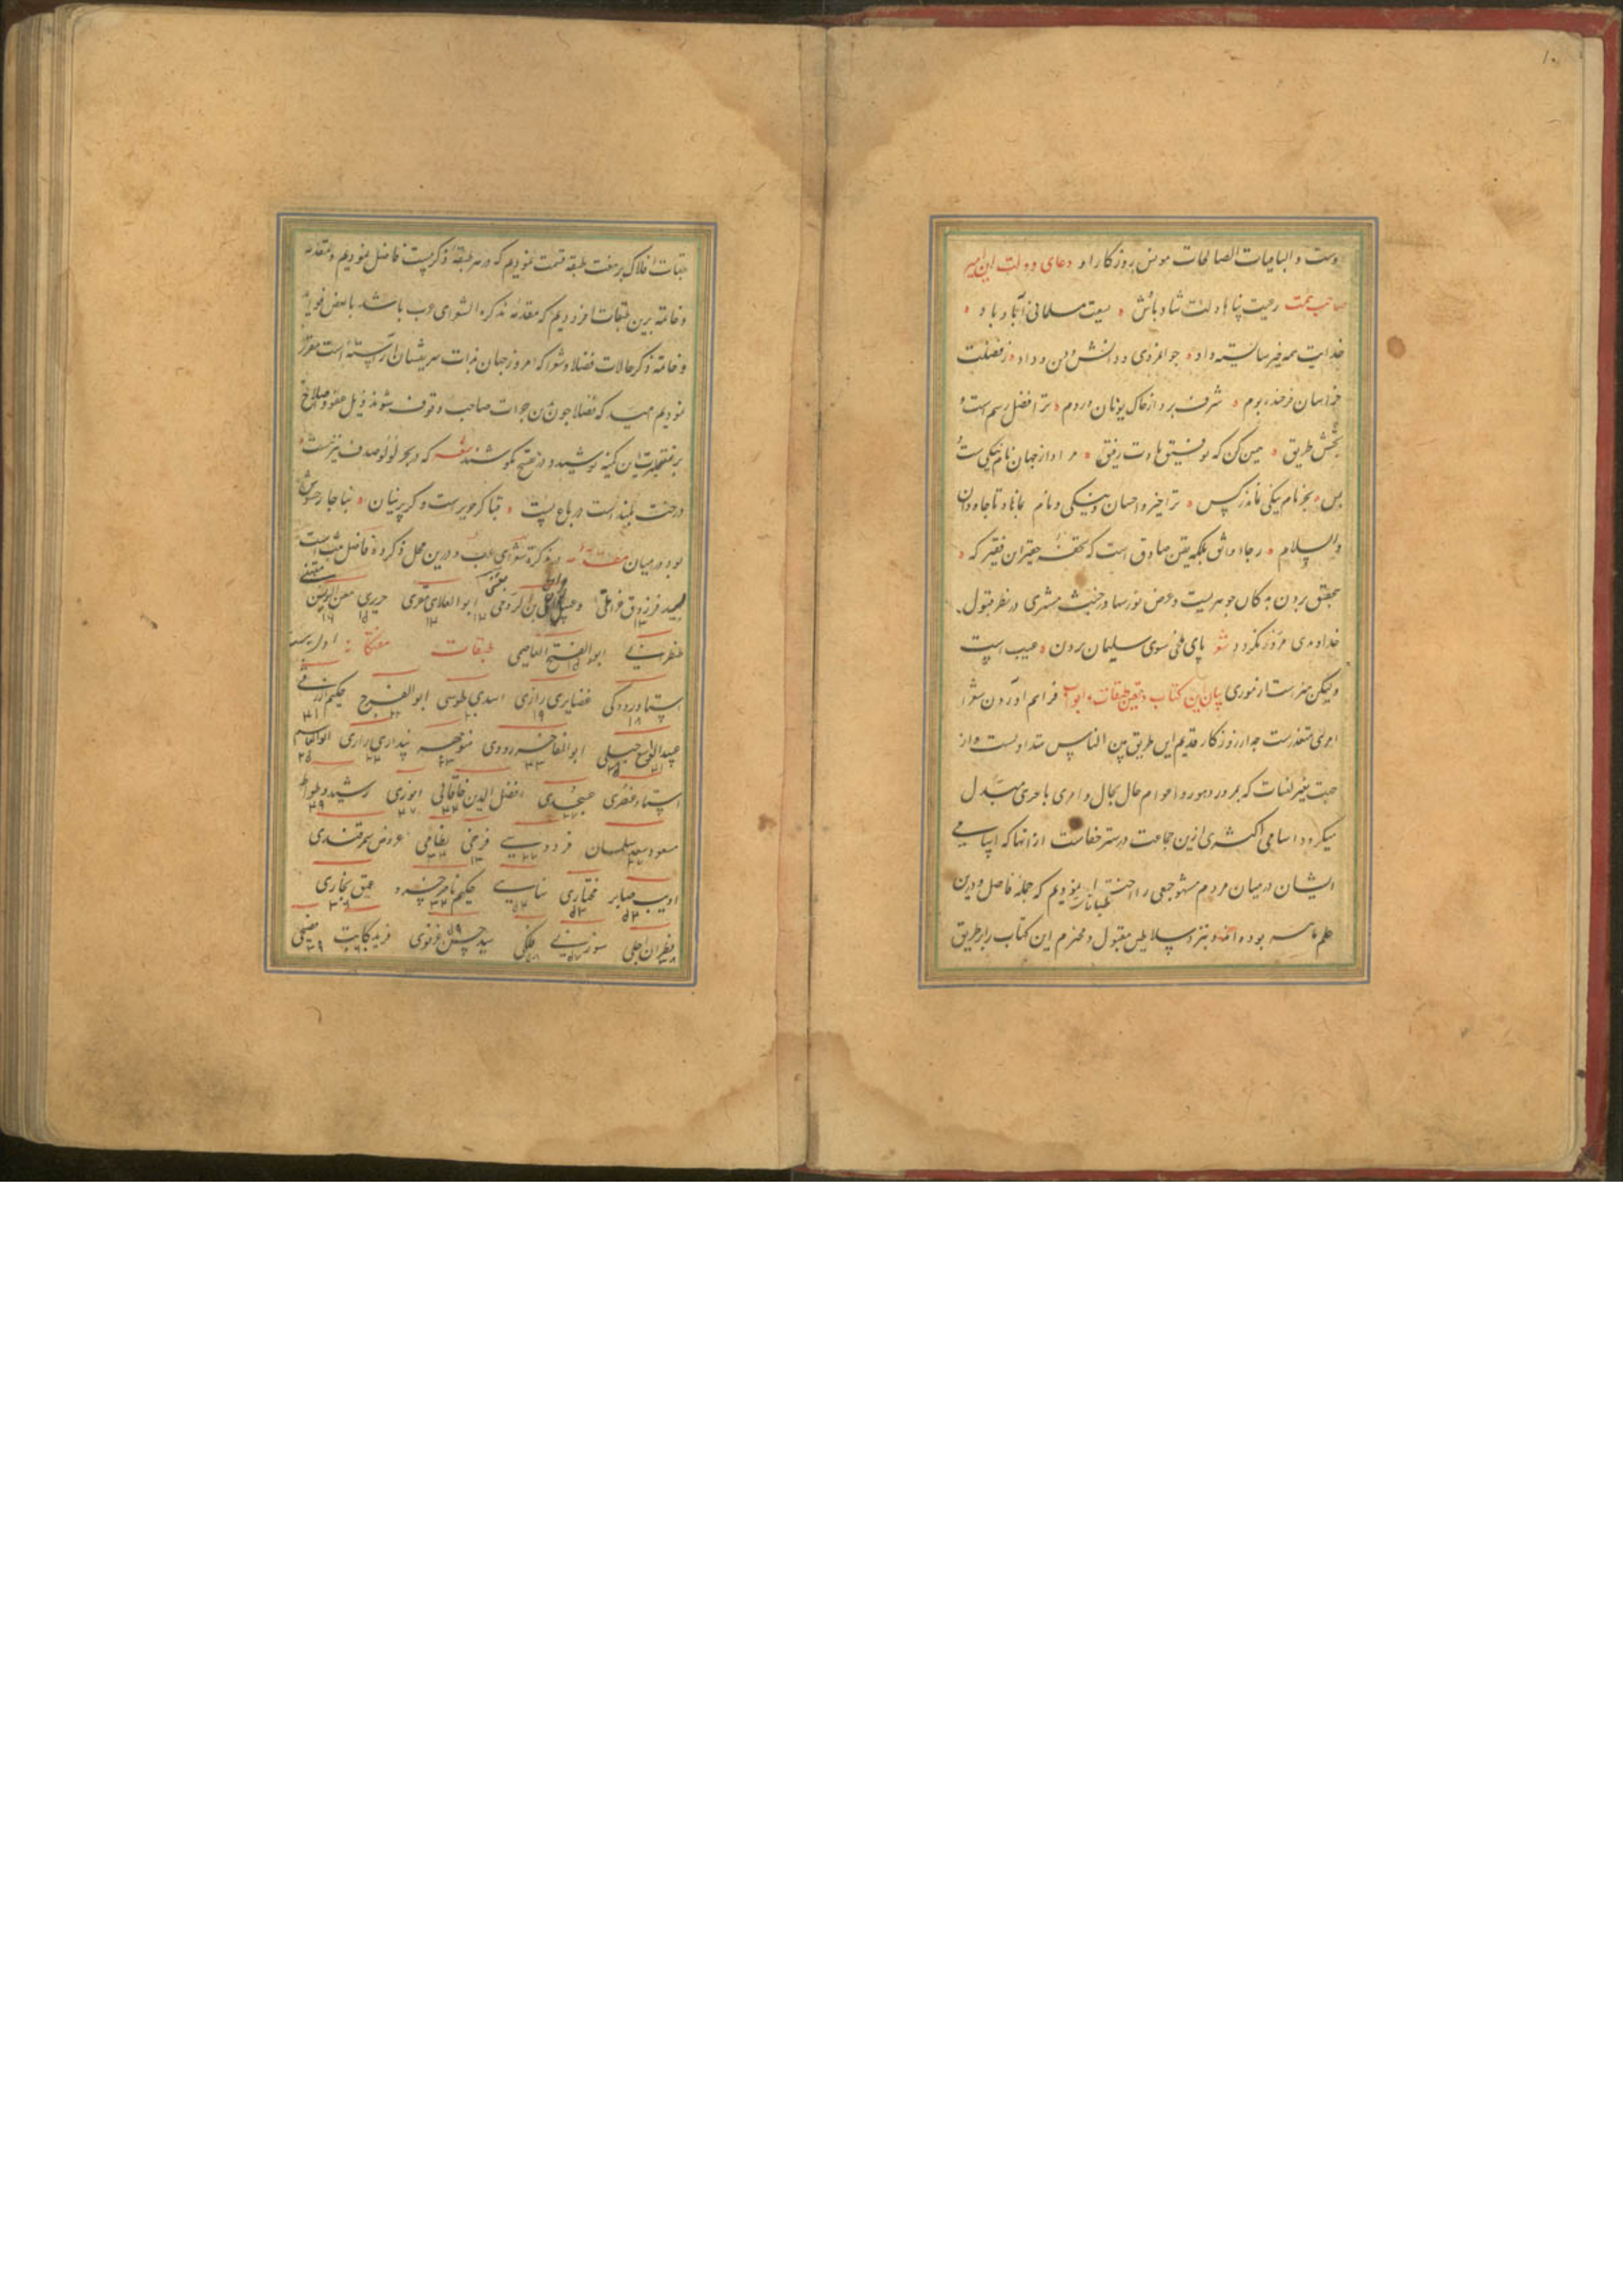 ۱۰
وست و الباقیات الصالحات مونس روزکار او دعای دولت این امیر
صاحب همت رعیت پناها دلت شاد باش سعیت مسلمانی آباد باد
خدایت همه خیر شایسته داد جوانمردی و دانش و دین و داد ز فضلت
خراسان فرخنده بوم شرف برد از خاک یونان و روم ترا فضل رسم است و
بخشش طریق همین کن که توفیق بادت رفیق مراد از جهان نام نیکی است
بس بجز نام نیکی نماند ز کس ترا خیر و احسان و نیکی و نام بماناد تا جاودان
والسلام رجاء واثق بلکه یقین صادق است که تحفه حقیر این فقیر که
بتحقیق بردن به کان جوهریست و عرض نور سها در جنب مشتری در نظر قبول
خداوندی مردود نکردد شعر پای ملخی سوی سلیمان بردن عیب است
ولیکن هنر است از موری بیان این کتاب و تعین طبقات و ابواب فراهم آوردن شعرا
امری متعذرست چه از روزکار قدیم این طریق بین الناس متداولست و از
میکردد اسامی اکثری ازین جماعت در ستر خفاست از آنها که اسامی
ایشان در میان مردم مشهور جمعی را اختیار نمودیم که جمله فاضل و درین
علم ماهر بوده‌اند و بنزد سلاطین مقبول و محترم این کتاب را بر طریق
طبقات افلاک بر هفت طبقه قسمت نمودیم که در هر طبقه ذکر بیست فاضل نمودیم و مقدمه
و خاتمه برین طبقات افزودیم که مقدمه تذکره الشعرای عرب باشد با بعض فواید
و خاتمه ذکر حالات فضلا و شعرا که امروز جهان بذات شریفشان آراسته است مقرر
نمودیم امید که فضلا چون برین جرات صاحب وقوف شوند ذیل عفو و اصلاح
بر این کمینه پوشیده در فضیح نکوشند شعر که در بحر لولو صدف نیز هست
درخت بلند است در باغ پست قبا کر حریر است و کر پرنیان بناچار حشوش
بود در میان مقدمه در تذکره شعرای عرب و درین محل ذکر ده فاضل مثبت است
لبید فرزدق دعبل خزاعی ابن الرومی متنبی ابوالعلای معری حریری
ابو الفتح طبقات هفتگانه اول
استاد رودکی غضایری رازی اسدی طوسی ابو الفرج حکیم ازرقی
عبدالواسع جبلی ابوالمفاخر رازی منوچهر پنداری رازی ابوالقاسم
استاد عنصری عسجدی افضل الدین خاقانی انوری رشید وطواط
مسعود سعد سلمان فردوسی فرخی نظامی عروضی سمرقندی
ادیب صابر مختاری سنایی حکیم ناصر خسرو عمق بخاری
قطران اجلی سوزنی فلکی سید حسن غزنوی فرید کاتب